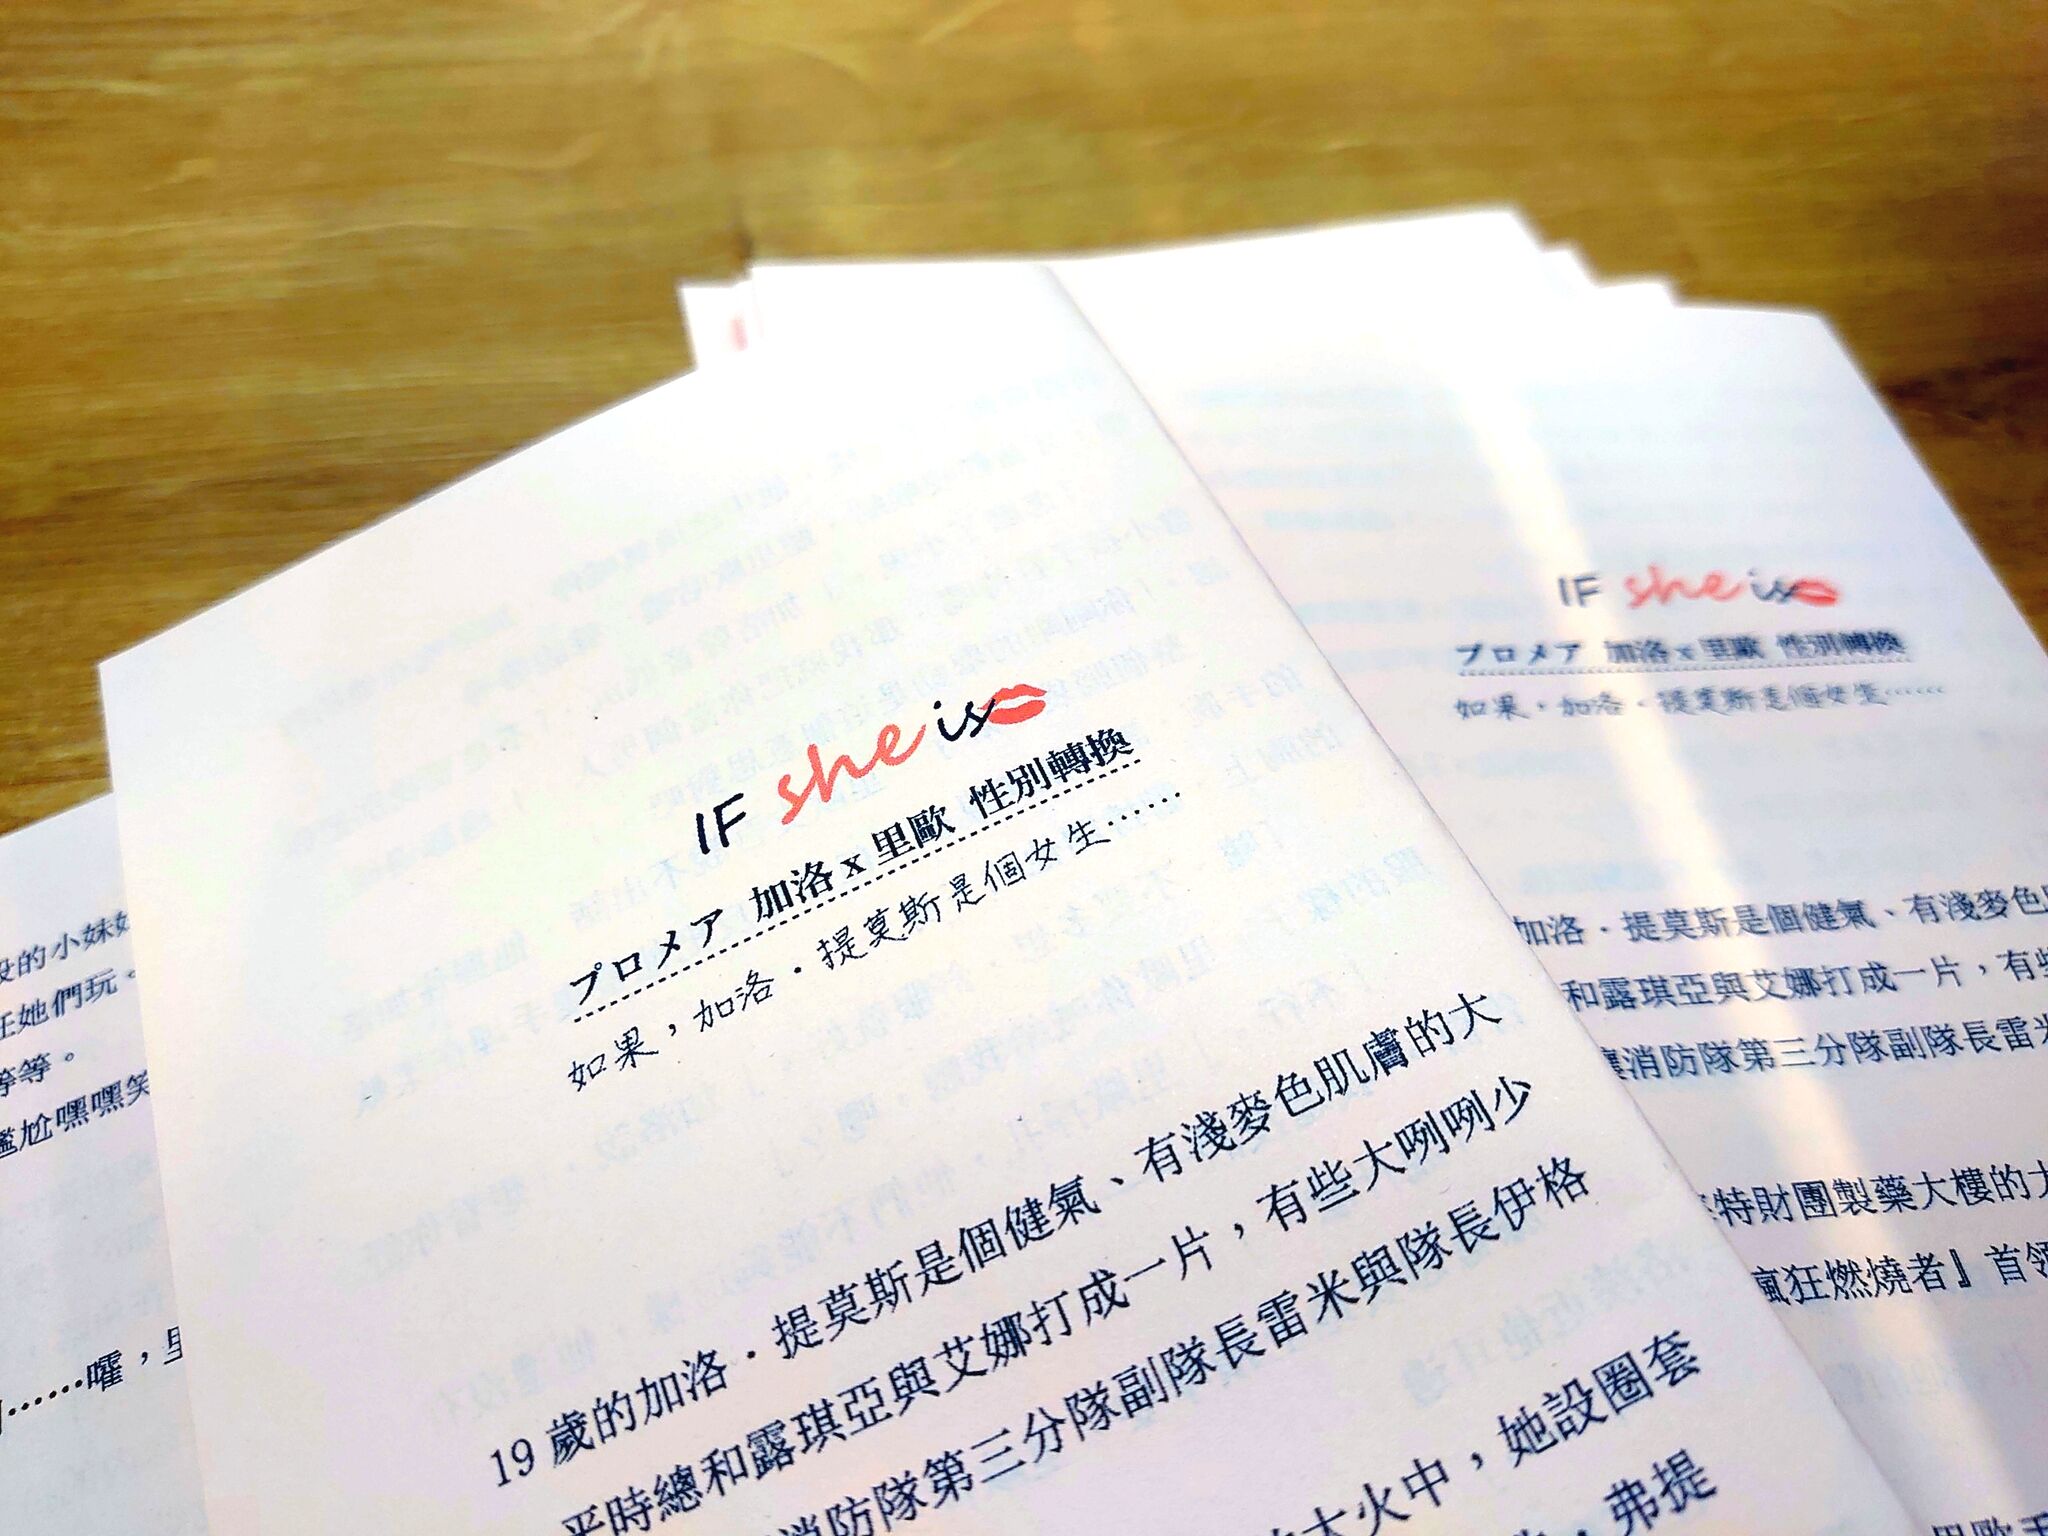 IF she is
プロメア 加洛 x 里歐 性別轉換
如果，加洛．提莫斯是個女生……
19 歲的加洛．提莫斯是個健氣、有淺麥色肌膚的大
平時總和露琪亞與艾娜打成一片，有些大咧咧少
消防隊第三分隊副隊長雷米與隊長伊格
大火中，她設圈套
弗提
IF she is
プロメア 加洛 x 里歐 性別轉換
如果，加洛．提莫斯是個女生……
加洛．提莫斯是個健氣、有淺麥色
和露琪亞與艾娜打成一片，有些
消防隊第三分隊副隊長雷米
特財團製藥大樓的大
瘋狂燃燒者』首領
的小妹妹
她們玩。
等等。
尷尬嘿嘿笑
……嚯，里